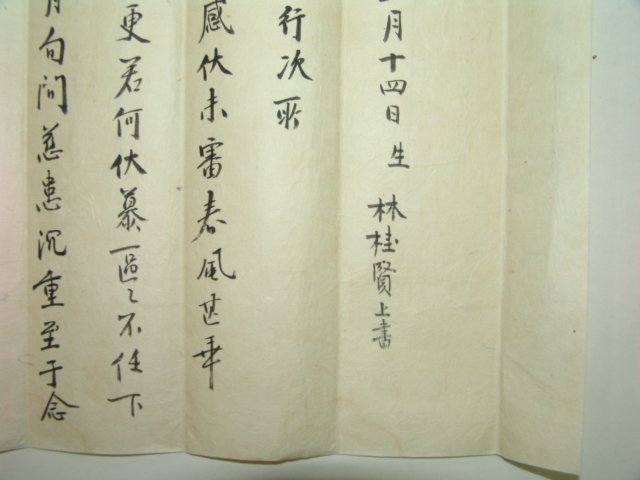 月十四日生 林桂賢上書
行次所
感伏未審春風甚乖
更若何伏慕區〻不任下
旬間慈患沉重至于念